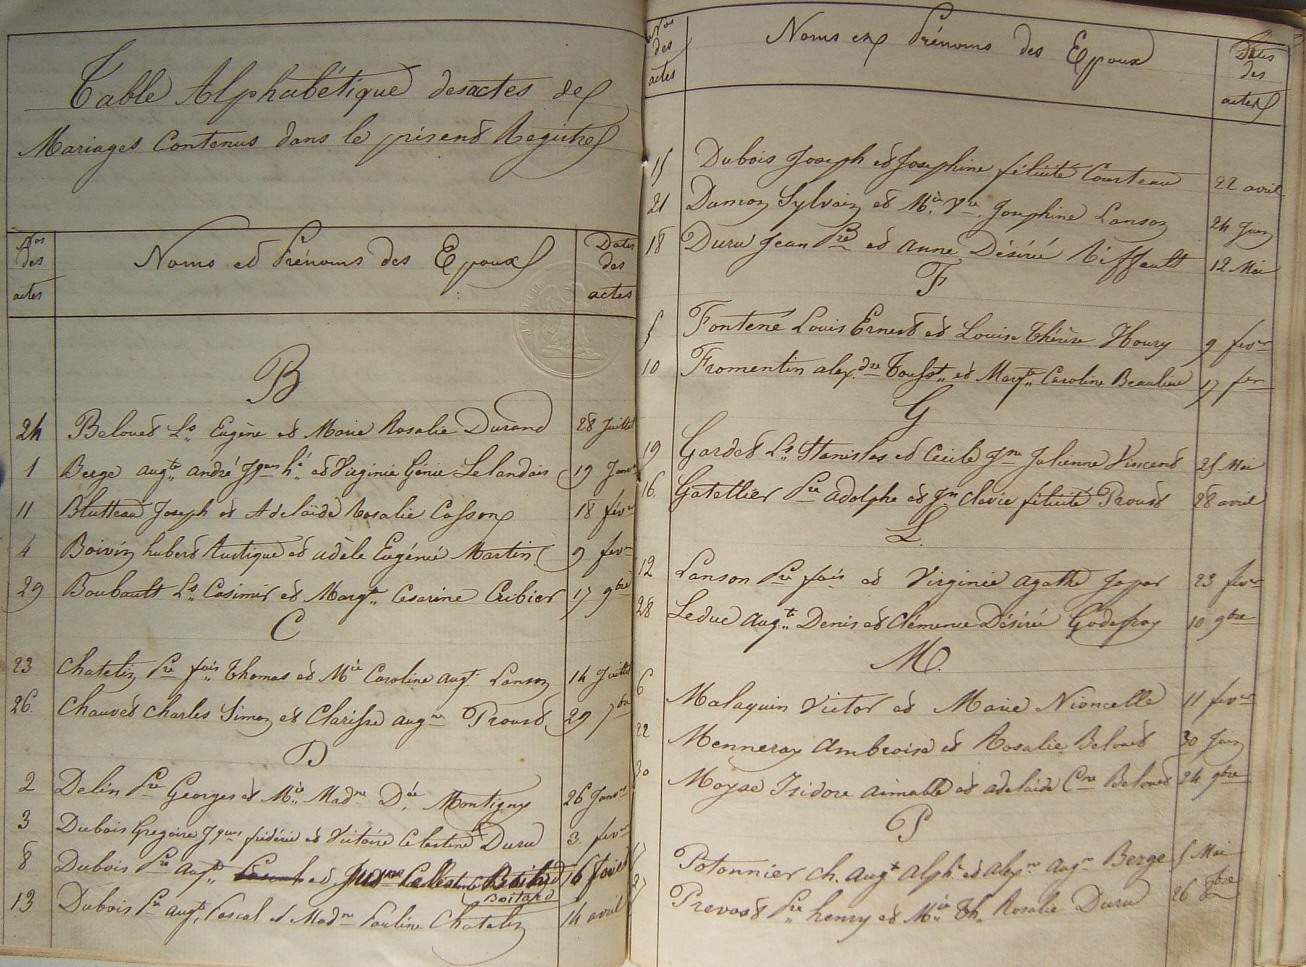 Table Alphabétique des actes de
Mariages Contenus dans le présent Registre
Nos des actes
Noms et Prénoms des Epoux
Dates des actes
B
24 Beloued Ls Eugène et Marie Rosalie Durand 28 Juillet
1 Berge augte andré Jques et Virginie Génie Le landais 19 Janv
11 Blutteau Joseph et Adelaïde Rosalie Cosson 18 fevr
4 Boivin hubert Rustique et adèle Eugénie Martin 9 fevr
29 Boubault Ls Casimir et Margte Cesarine Cribier 17 9bre
C
23 Chatelin Pre fois Thomas et Mie Caroline augte Lanson 14 Juillet
26 Chauved Charles Simon et Clarisse augne Proust 29 7bre
D
2 Delin Pre Georges et Mie Madne Dée Montigny 26 Janvr
3 Dubois Gregoire Jques fréderic et Victoire Celestine Duru 3 fevr
8 Dubois Pre augte et Celestine 16 fevrier
Boitard
13 Dubois Pre augte Pascal et Madne Pauline Chatelin 14 avril
Nos des actes
Noms et Prénoms des Epoux
Dates des actes
15 Dubois Joseph et Josephine félicité Courteau 22 avril
21 Dumon Sylvain et Mie Vre Josephine Lanson 24 Juin
18 Duru Jean Bte et anne Désirée Riffault 12 Mai
F
5 Fontené Louis Ernest et Louise Thérèse Houry 9 fevr
10 Fromentin alexdre Tousst et Margte Caroline Beaulieu 17 fevr
G
19 Gardet Ls Stanislas et Cécile Jne Julienne Vincent 25 Mai
16 Gatellier Pre adolphe et félicité Proust 28 avril
L
12 Lanson Pre fois et Virginie agathe 23 fevr
28 Leduc augte Denis et Clémence Désirée Godefroy 10 9bre
M
6 Malaquin Victor et Marie Nioncelle 11 fevr
22 Menneray Ambroise et Rosalie Beloued 30 Juin
30 Moyse Isidore aimable et adelaïde Cne Beloued 24 9bre
P
Potonnier Ch. augte alph. et alexne augne Berge 5 Mai
27 Prevost Pre henry et Mie Th. Rosalie Duru 26 8bre